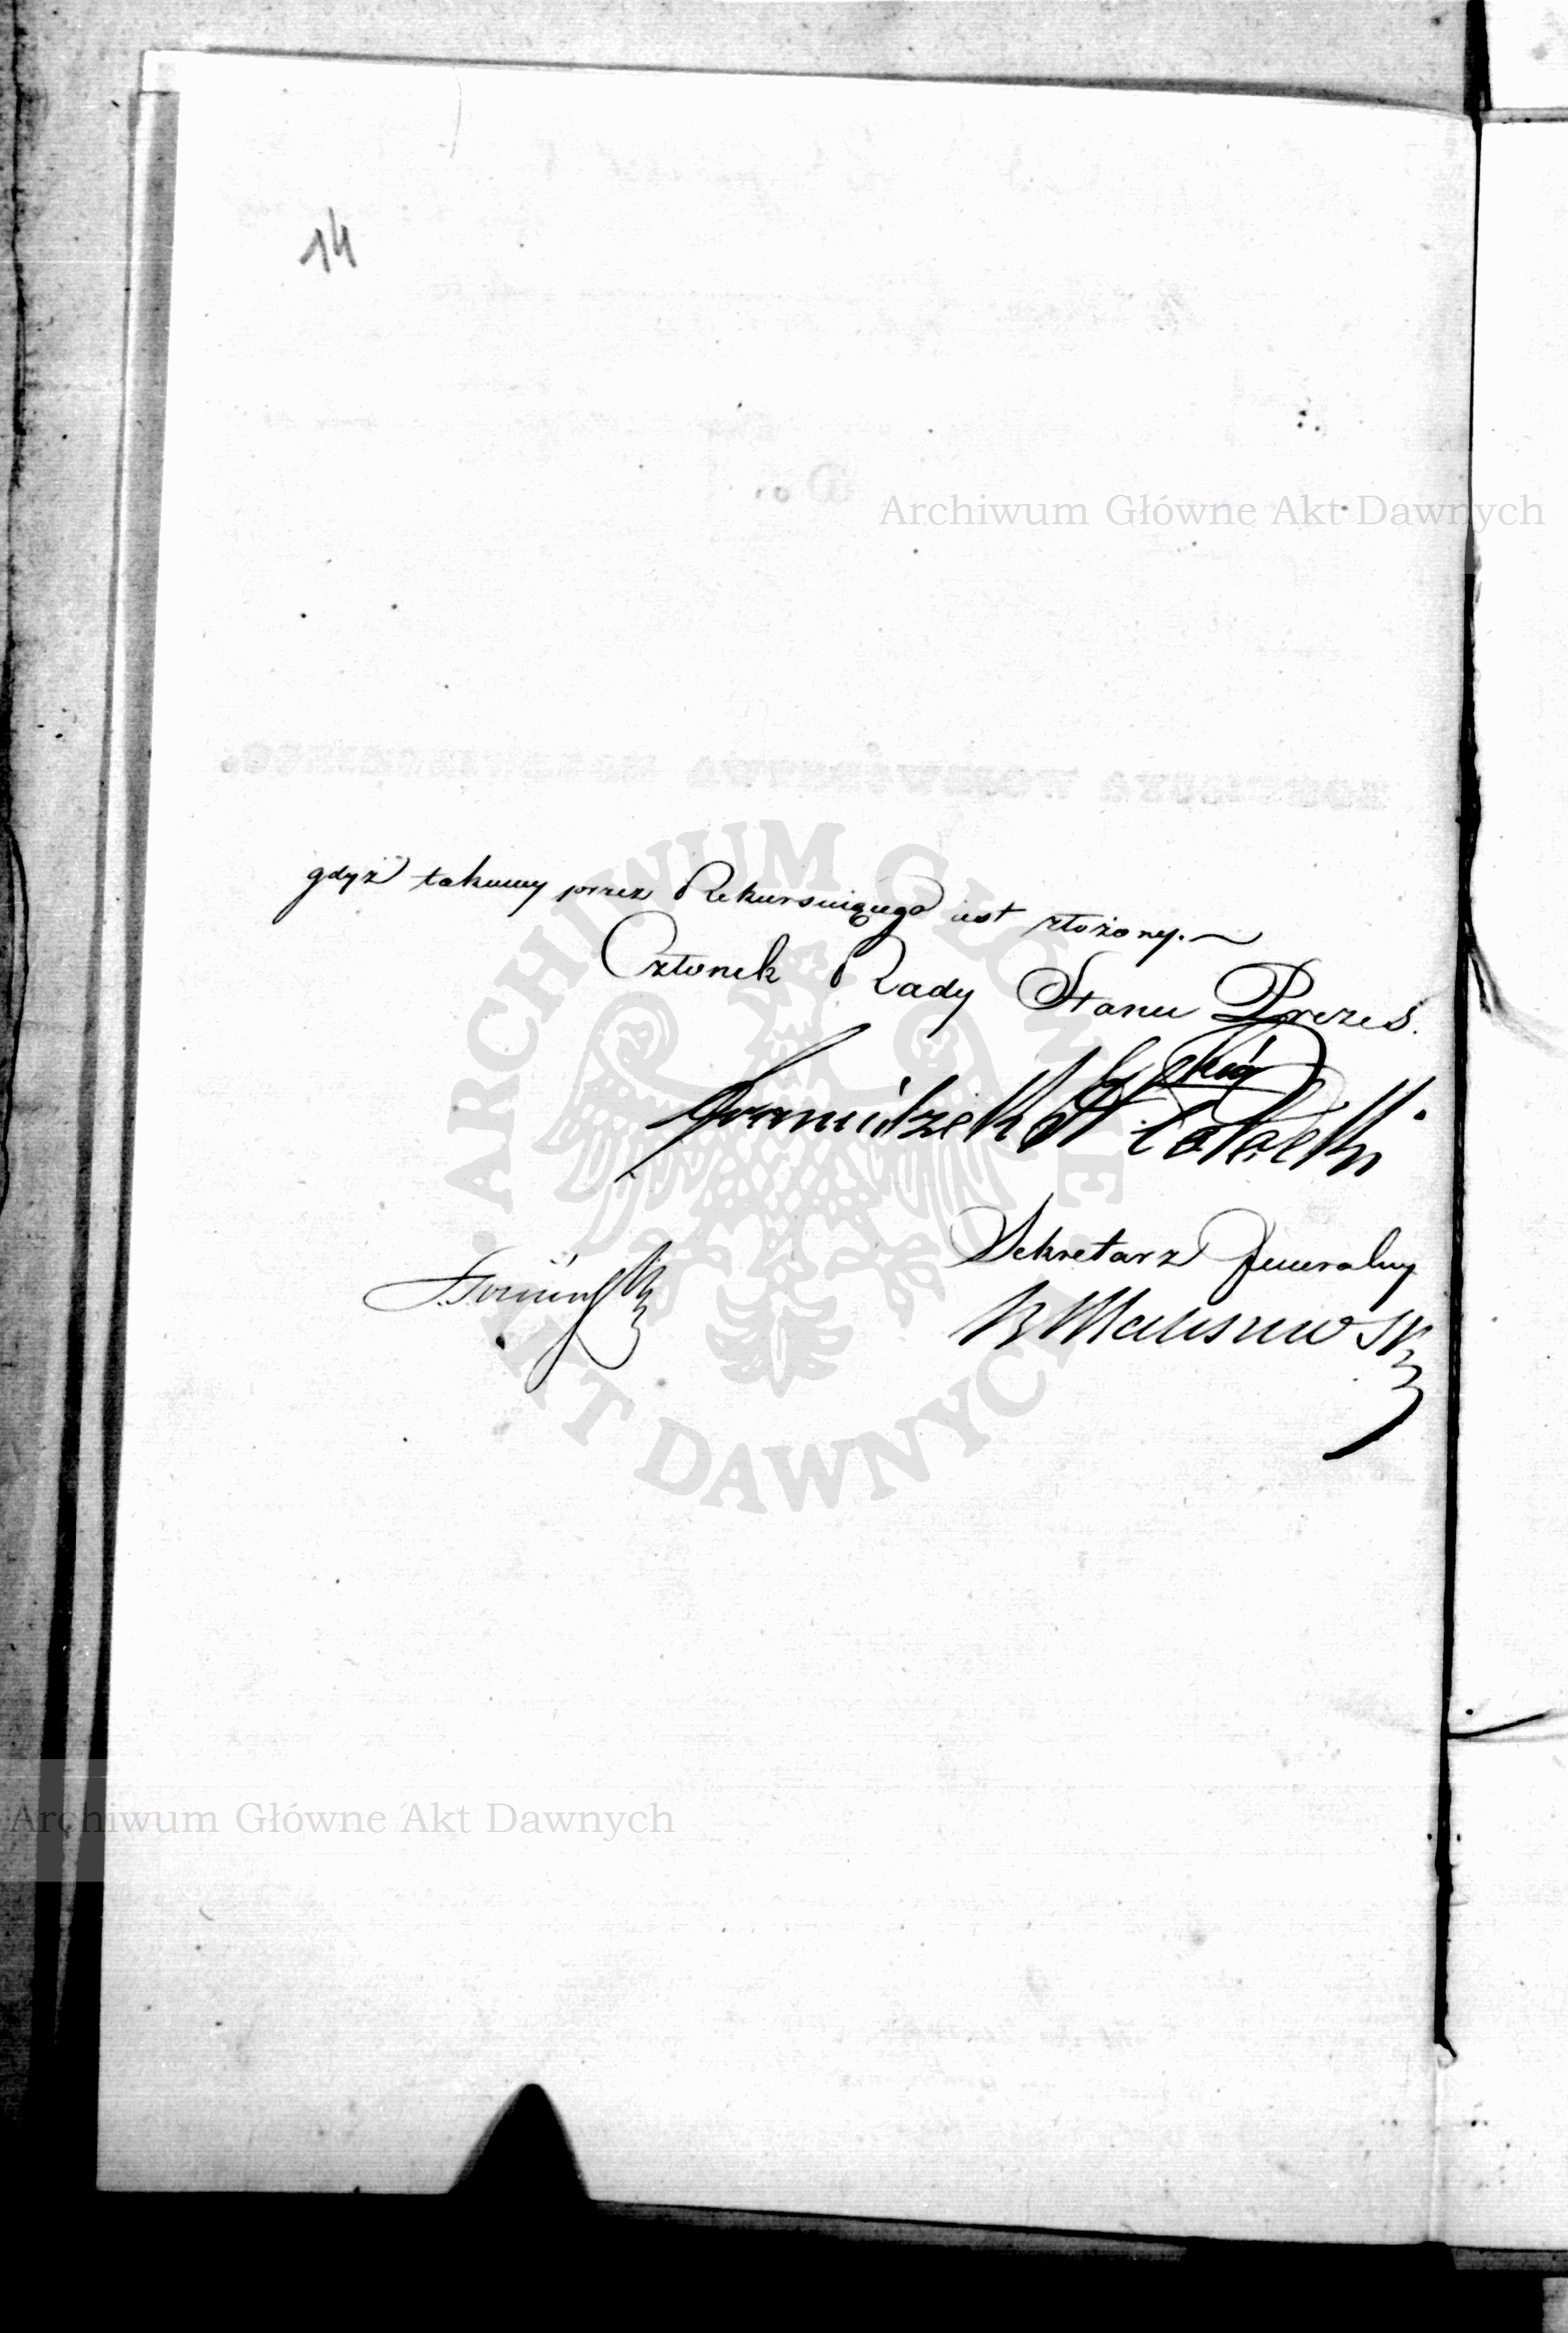 14
Archiwum Główne Akt Dawnych
KOMMISSYA WOJEWÓDZTWA MAZOWIECKIEGO.
gdyż takowy przez Rekursuiącego iest złożony.
Członek Rady Stanu Prezes.
Sekretarz Jeneralny
ARCHIWUM GŁÓWNE AKT DAWNYCH
Archiwum Główne Akt Dawnych